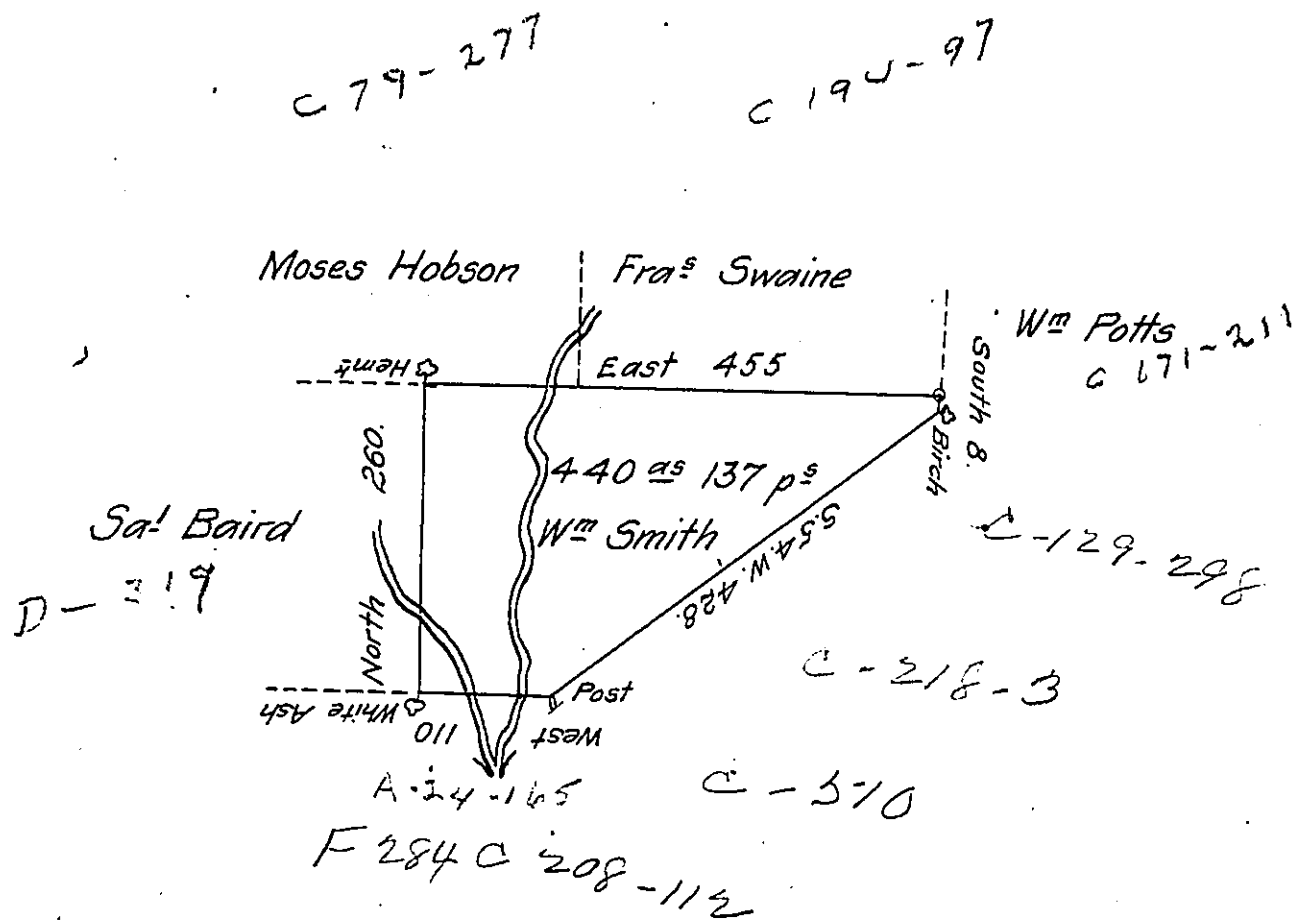 C 79-277
C 194-97
Moses Hobson
Fraˢ Swaine
Wᵐ Potts
C 171-211
Hemᵏ
East 455
South 8.
Birch
North 260.
440 ᵃˢ 137 pˢ
Wᵐ Smith
S.54.W. 428.
Saˡ Baird
D-
C-129-298
C-218-3
White Ash
110 West
Post
A-24-165
C-
F 284 C 208-112